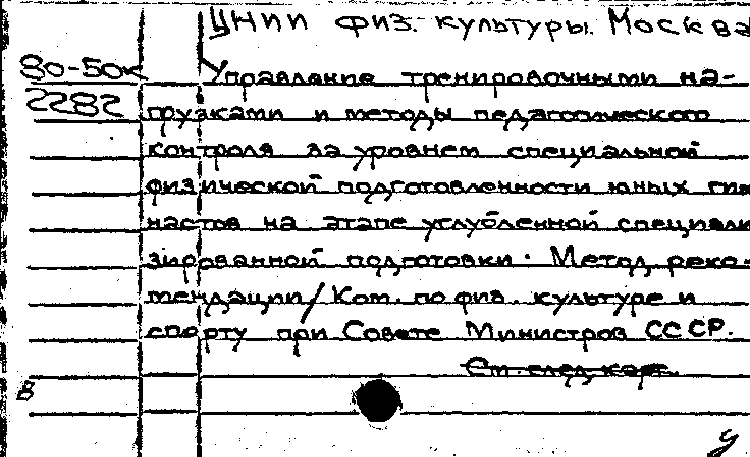 ЦНИИ физ. культуры. Москва
80-50к Управление тренировочными на-
2282 грузками и методы педагогического
контроля за уровнем специальной
физической подготовленности юных гим
настов на этапе углубленной специали
зированной подготовки. Метод. реко-
мендации/Ком. по физ. культуре и
спорту при Совете Министров СССР.
См. след. карт.
В
у